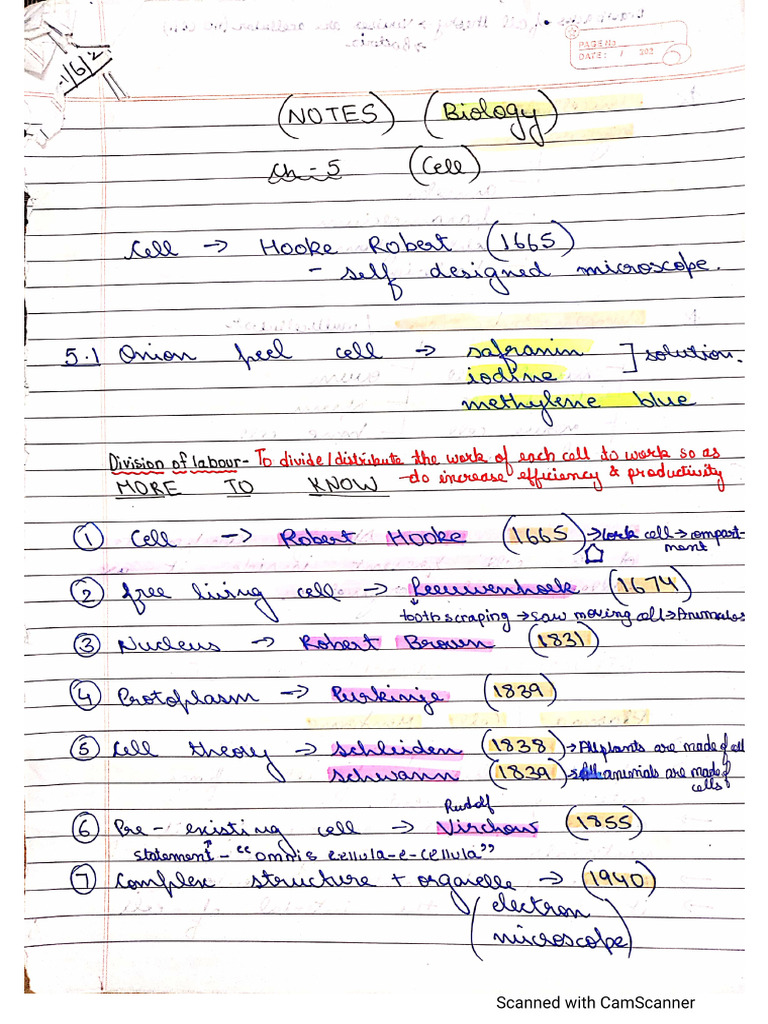 PAGE No.
DATE: / / 202
(NOTES) (Biology)
Ch - 5 (Cell)
Cell → Hooke Robert (1665)
- self designed microscope.
5.1 Onion peel cell → safranin ] solution.
iodine
methylene blue
Division of labour - To divide/distribute the work of each cell to work so as
MORE TO KNOW - to increase efficiency & productivity
① Cell → Robert Hooke (1665) → Cork cell → compart-
ment
② free living cell → Leeuwenhoek (1674)
tooth scraping → saw moving cell →
③ Nucleus → Robert Brown (1831)
④ Protoplasm → Purkinje (1839)
⑤ Cell theory → Schleiden (1838) → All plants are made of cell
Schwann (1839) → All animals are made of
cells
Rudolf
⑥ Pre-existing cell → Virchow (1855)
statement - "omnis cellula-e-cellula"
⑦ Complex structure + organelle → (1940)
(electron
microscope)
Scanned with CamScanner